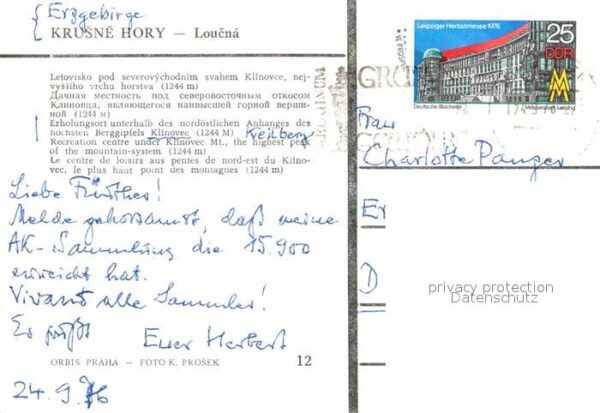 Erzgebirge
KRUŠNÉ HORY — Loučná
Letovisko pod severovýchodním svahem Klínovce, nej-
vyššího vrchu horstva (1244 m)
Дачная местность под северовосточным откосом
Клиновца, являющегося наивысшей горной верши-
ной (1244 m)
Erholungsort unterhalb des nordöstlichen Anhanges des
höchsten Berggipfels Klínovec (1244 m) Keilberg
Recreation centre under Klínovec Mt., the highest peak
of the mountain-system (1244 m)
Le centre de loisirs aux pentes de nord-est du Klíno-
vec, le plus haut point des montagnes (1244 m)
Liebe Fürther!
Melde gehorsamst, daß meine
AK-Sammlung die 15.900
erreicht hat.
Vivant alle Sammler!
Es grüßt Euer Herbert
ORBIS PRAHA — FOTO K. PROŠEK 12
24.9.76
Leipziger Herbstmesse 1976
25
DDR
MM
Deutsche Bücherei
Messestadt Leipzig
Frau
Charlotte Panzer
Er
D
privacy protection
Datenschutz